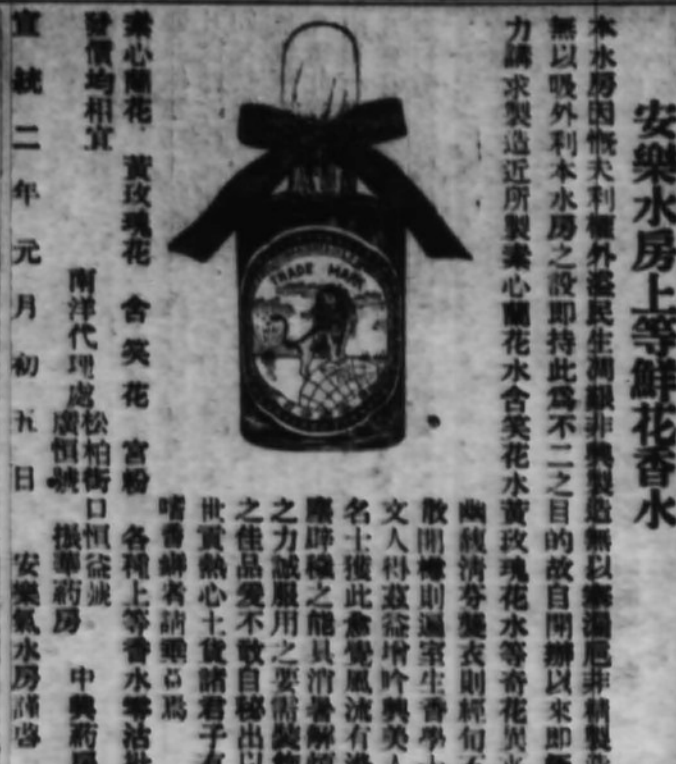 安樂水房上等鮮花香水
本水房因慨夫利權外溢民生凋非興製造無以塞漏巵非精製造
無以吸外利本水房之設即持此爲不二之目的故自開辦以來即
力講求製造近所製素心蘭花水含笑花水黃玫瑰花水等奇花異
幽馥清芬襲衣則經旬不
散開樽則滿室生香學士
文人得玆益增吟興美人
名士獲此愈覺風流有
辟穢之能具消暑解
之力誠服用之要需裝飾
之佳品愛不敢自秘出以
世實熱心土貨諸君子有
嗜香癖者請垂爲
TRADE MARK
素心蘭花 黃玫瑰花 含笑花 宮粉 各種上等香水零沽批
發價均相宜
南洋代理處 松柏街口恒益號
廣恒號 振華葯房 中興葯房
宣統二年元月初五日 安樂氣水房謹啓